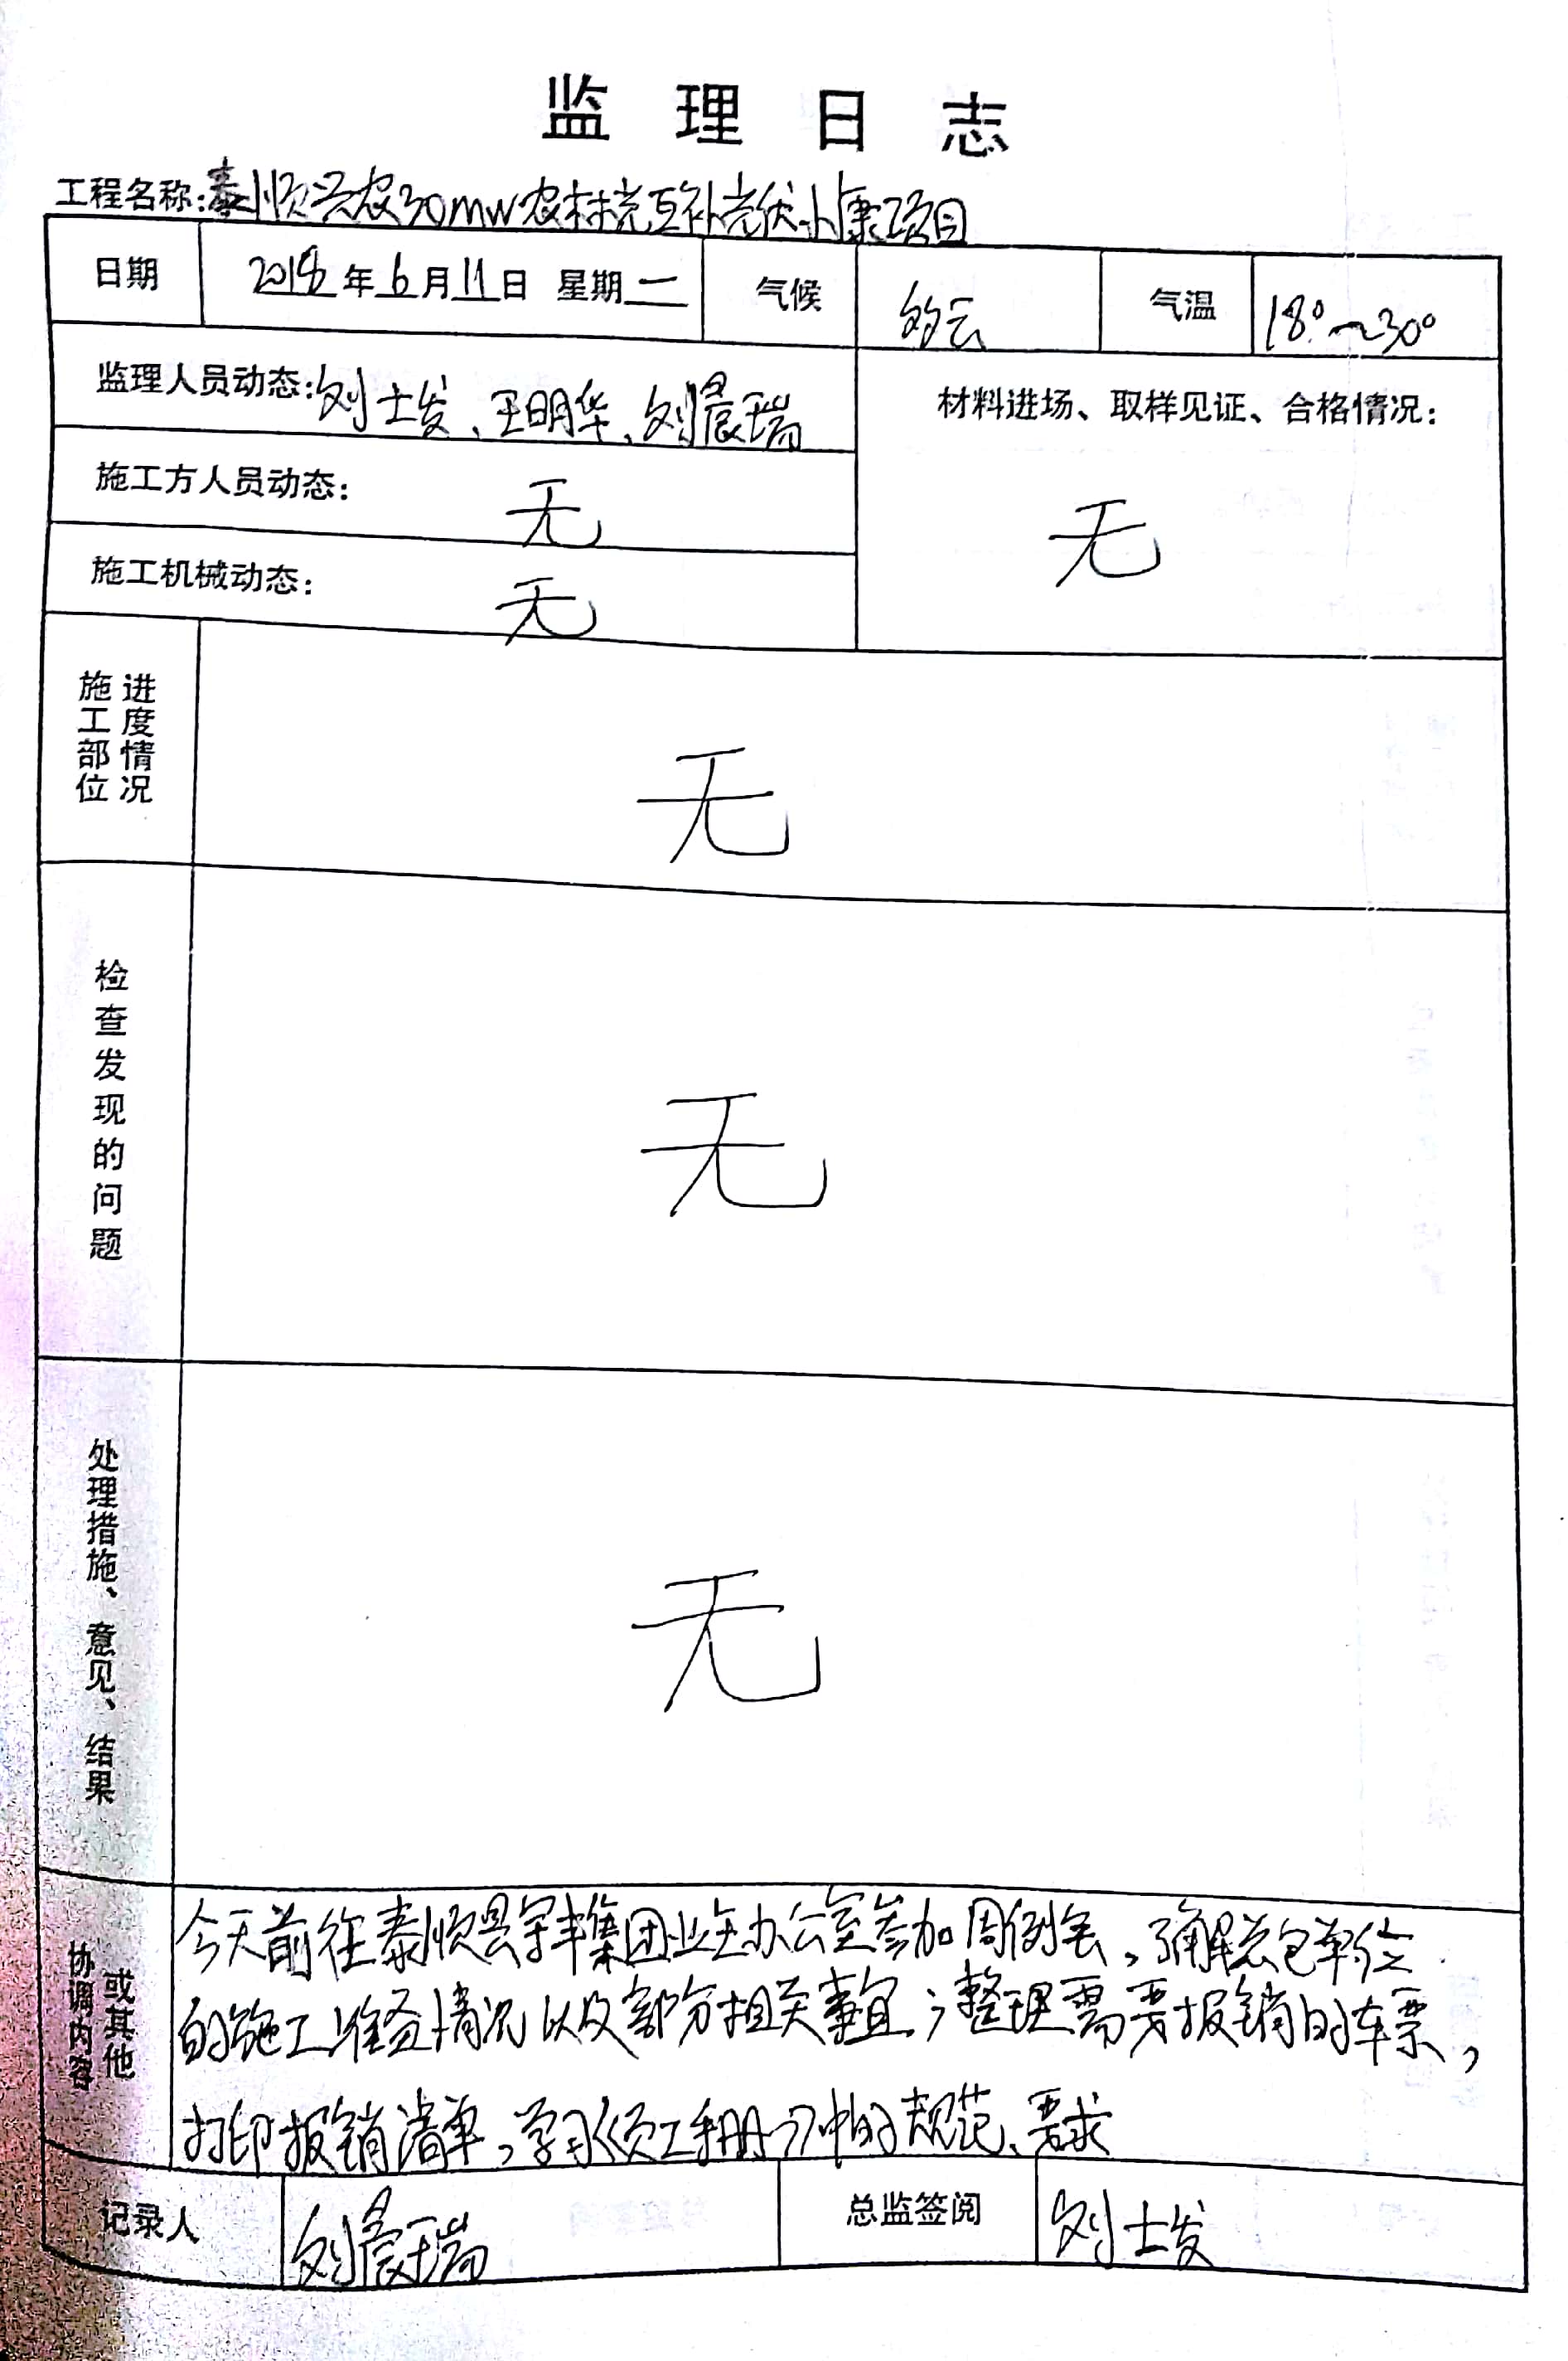 监理日志
工程名称:泰顺兴农30mw农林光互补光伏小康项目
日期 2018年6月11日 星期一 气候 多云 气温 18°~30°
监理人员动态:刘士发、王明华、刘晨瑞
材料进场、取样见证、合格情况:
无
施工方人员动态: 无
施工机械动态: 无
施工部位 进度情况 无
检查发现的问题 无
处理措施、意见、结果 无
协调内容或其他
今天前往泰顺县宇丰集团业主办公室参加周例会,了解总包单位
的施工准备情况以及部分相关事宜;整理需要报销的车票,
打印报销清单,学习《员工手册》中的规范、要求
记录人 刘晨瑞 总监签阅 刘士发